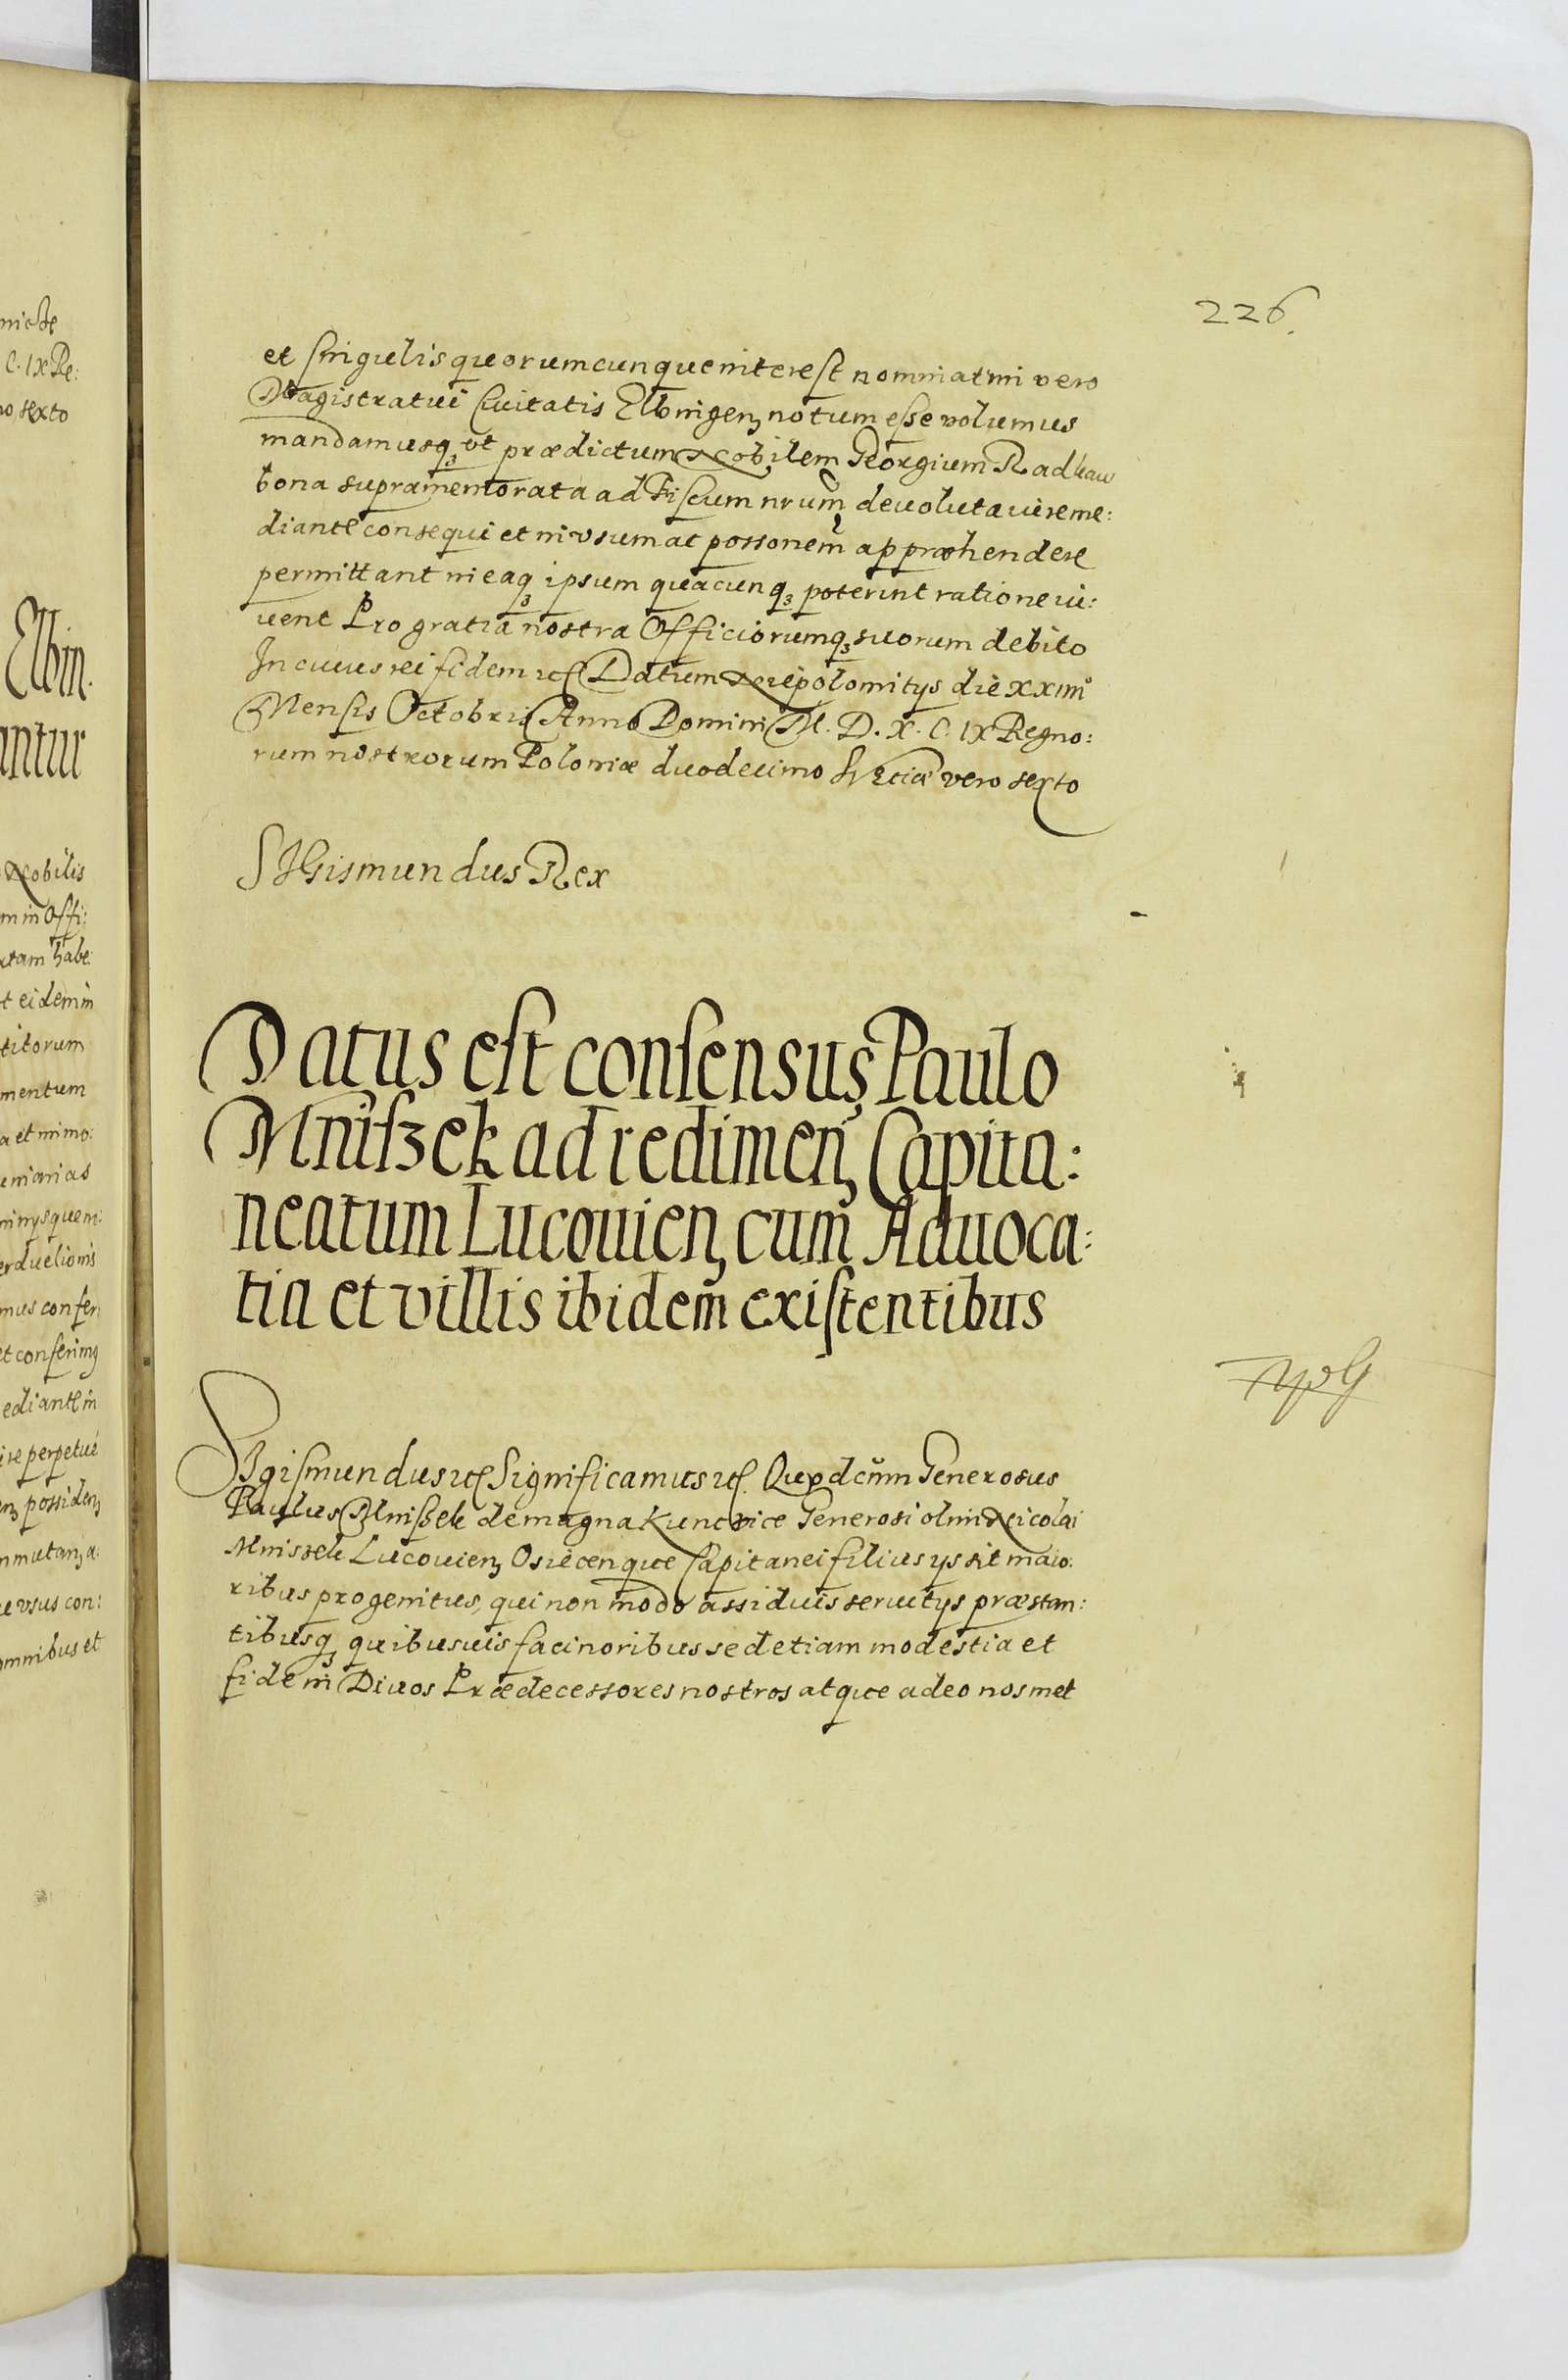 226.
et singulis quorumcunque interest nominatim vero
Magistratui Civitatis Elbingen notum esse volumus
mandamusq ut prædictum Nobilem Georgium Radkaw
bona supramemorata ad Fiscum nrum devoluta iure me:
diante consequi et in usum ac possonem appræhendere
permittant in eaq ipsum quacunq poterint ratione iu:
uent Pro gratia nostra Officiorumq suorum debito
In cuius rei fidem etc Datum Niepolomitys die XXIIII
Mensis Octobris Anno Domini M. D. X. C. IX Regno:
rum nostrorum Poloniæ duodecimo Sveciæ vero sexto
SIGismundus Rex
Datus est consensus Paulo
Mniszek ad redimen Capita:
neatum Lucouien cum Aduoca:
tia et villis ibidem existentibus
SIgismundus etc Significamus etc. Quod cum Generosus
Paulus Mniszek de magna Kunczice Generosi olim Nicolai
Mniszek Lucouien Osiecenque Capitanei filius ys sit maio:
ribus progenitus, qui non modo assiduis seruitys præstan:
tibusq quibusuis facinoribus sed etiam modestia et
fide in Diuos Prædecessores nostros atque adeo nosmet
niche
C. IX Re:
no sexto
Elbin.
antur
Nobilis
m in Offi:
ctam habe:
t eidem in
titorum
mentum
a et inmo:
uniarias
erduelionis
mus confer
et conferimq
ediante in
ire perpetue
en possiden
mmutan a:
e usus con:
omnibus et